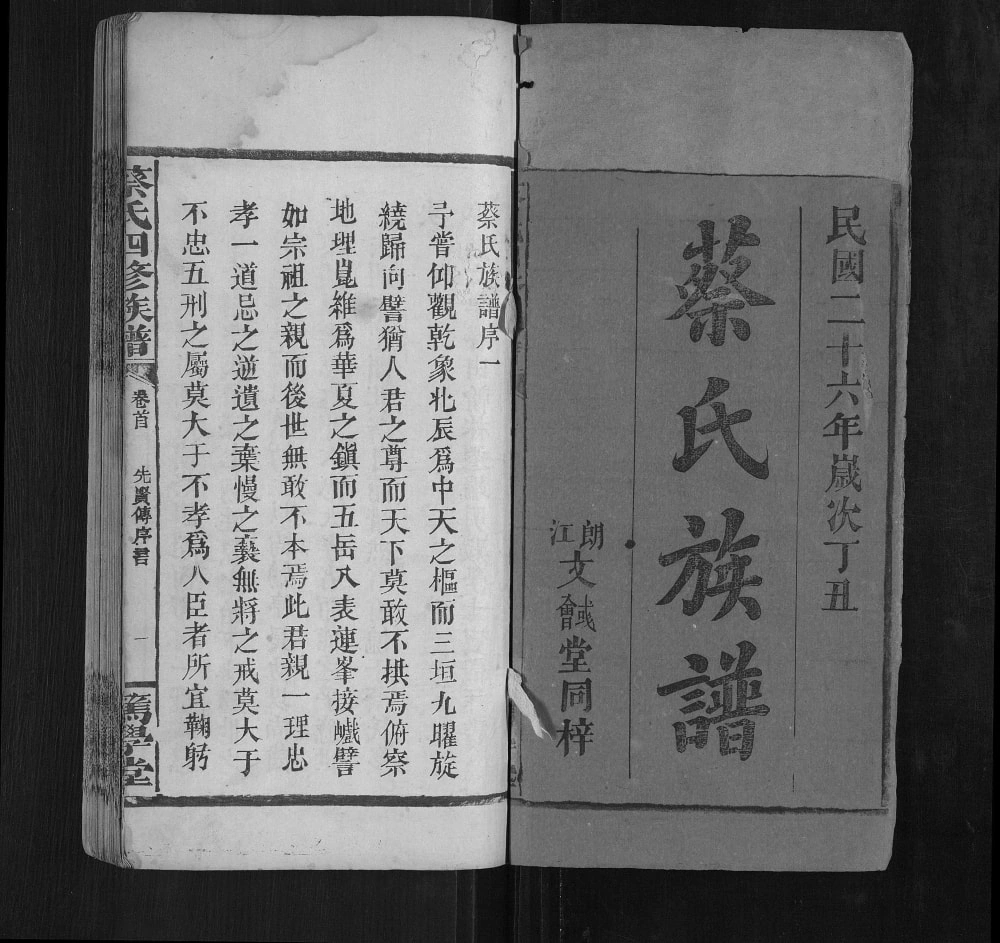 民國二十六年歲次丁丑
蔡氏族譜
朗江文會堂同梓
蔡氏族譜序一
予嘗仰觀乾象北辰爲中天之樞而三垣九曜旋
繞歸向譬猶人君之尊而天下莫敢不拱焉俯察
地理崑維爲華夏之鎭而五岳八表連峯接巘譬
如宗祖之親而後世無敢不本焉此君親一理忠
孝一道忌之逆遺之棄慢之褻無將之戒莫大于
不忠五刑之屬莫大于不孝爲人臣者所宜鞠躬
蔡氏四修族譜
卷首
先賢傳序君
一
篤學堂